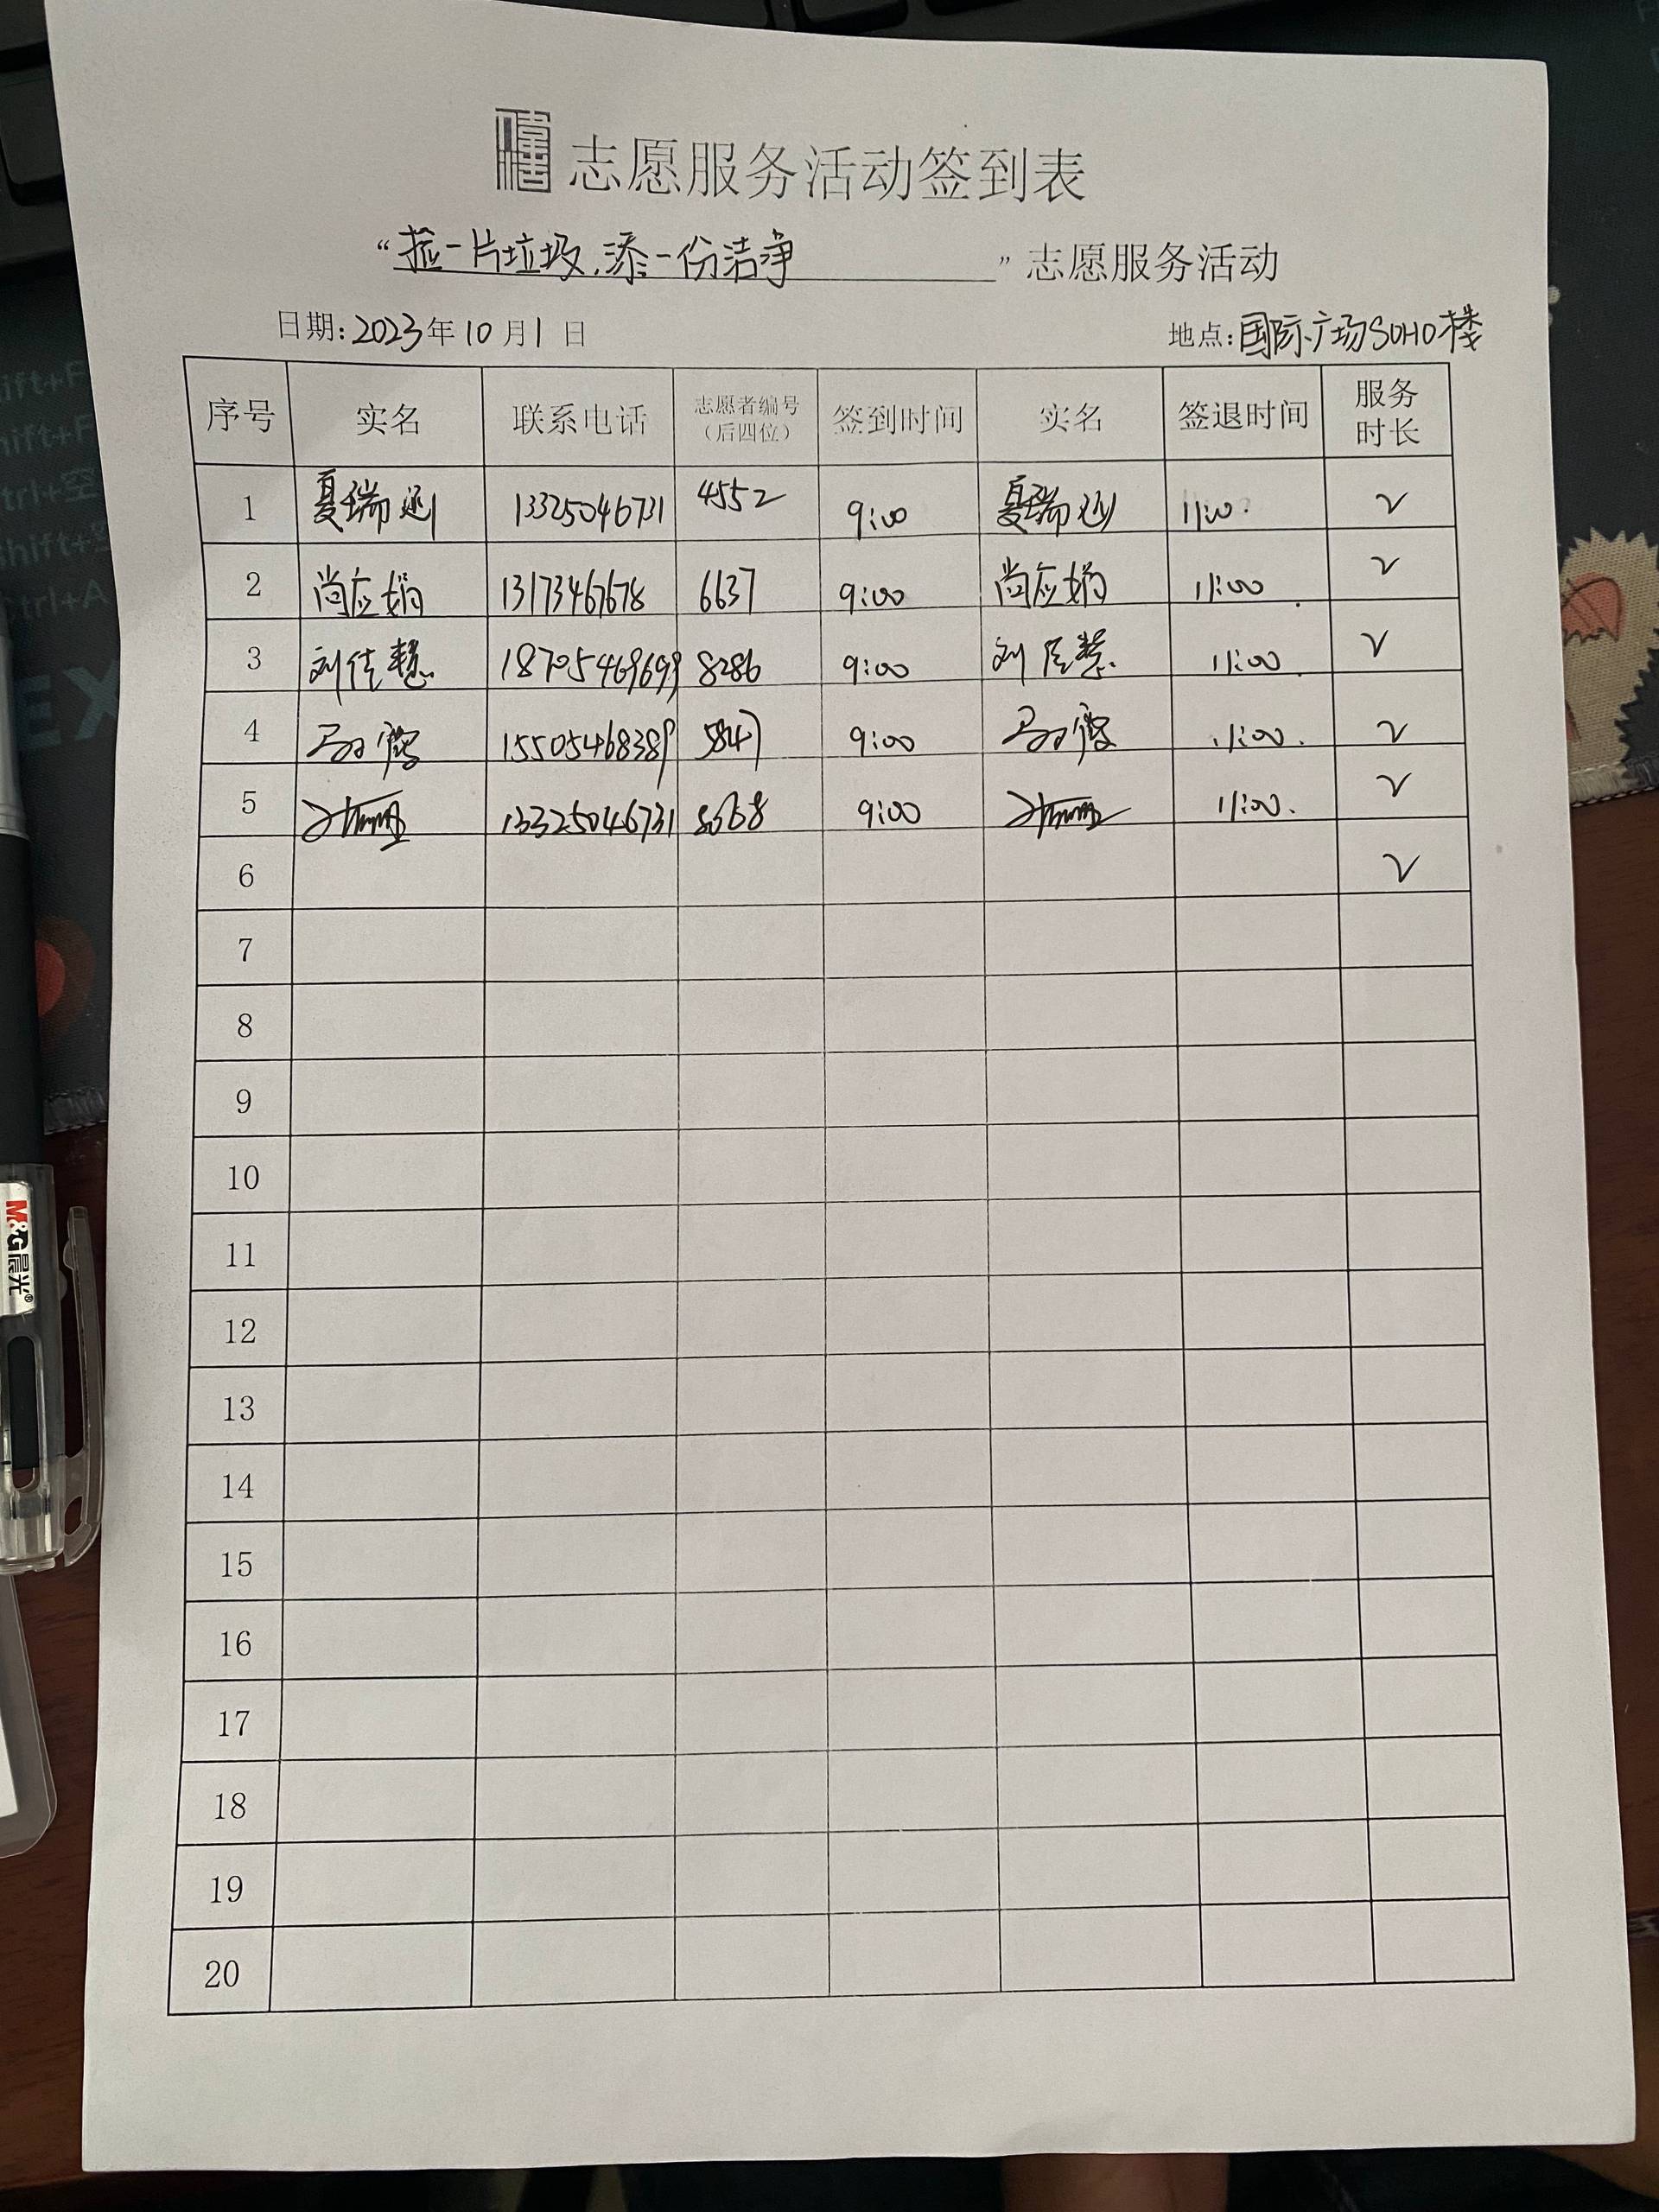 志愿服务活动签到表
“捡一片垃圾,添一份洁净” 志愿服务活动
日期:2023年10月1日 地点:国际广场SOHO楼
序号 实名 联系电话 志愿者编号（后四位） 签到时间 实名 签退时间 服务时长
1 夏瑞 13325046731 4552 9:00 夏瑞 11:00 √
2 尚应娟 13173467678 6637 9:00 尚应娟 11:00 √
3 刘佳慧 18705469699 8286 9:00 刘佳慧 11:00 √
4 15505468389 5847 9:00 11:00 √
5 13325046731 8668 9:00 11:00 √
6 √
7
8
9
10
11
12
13
14
15
16
17
18
19
20
M&G晨光®